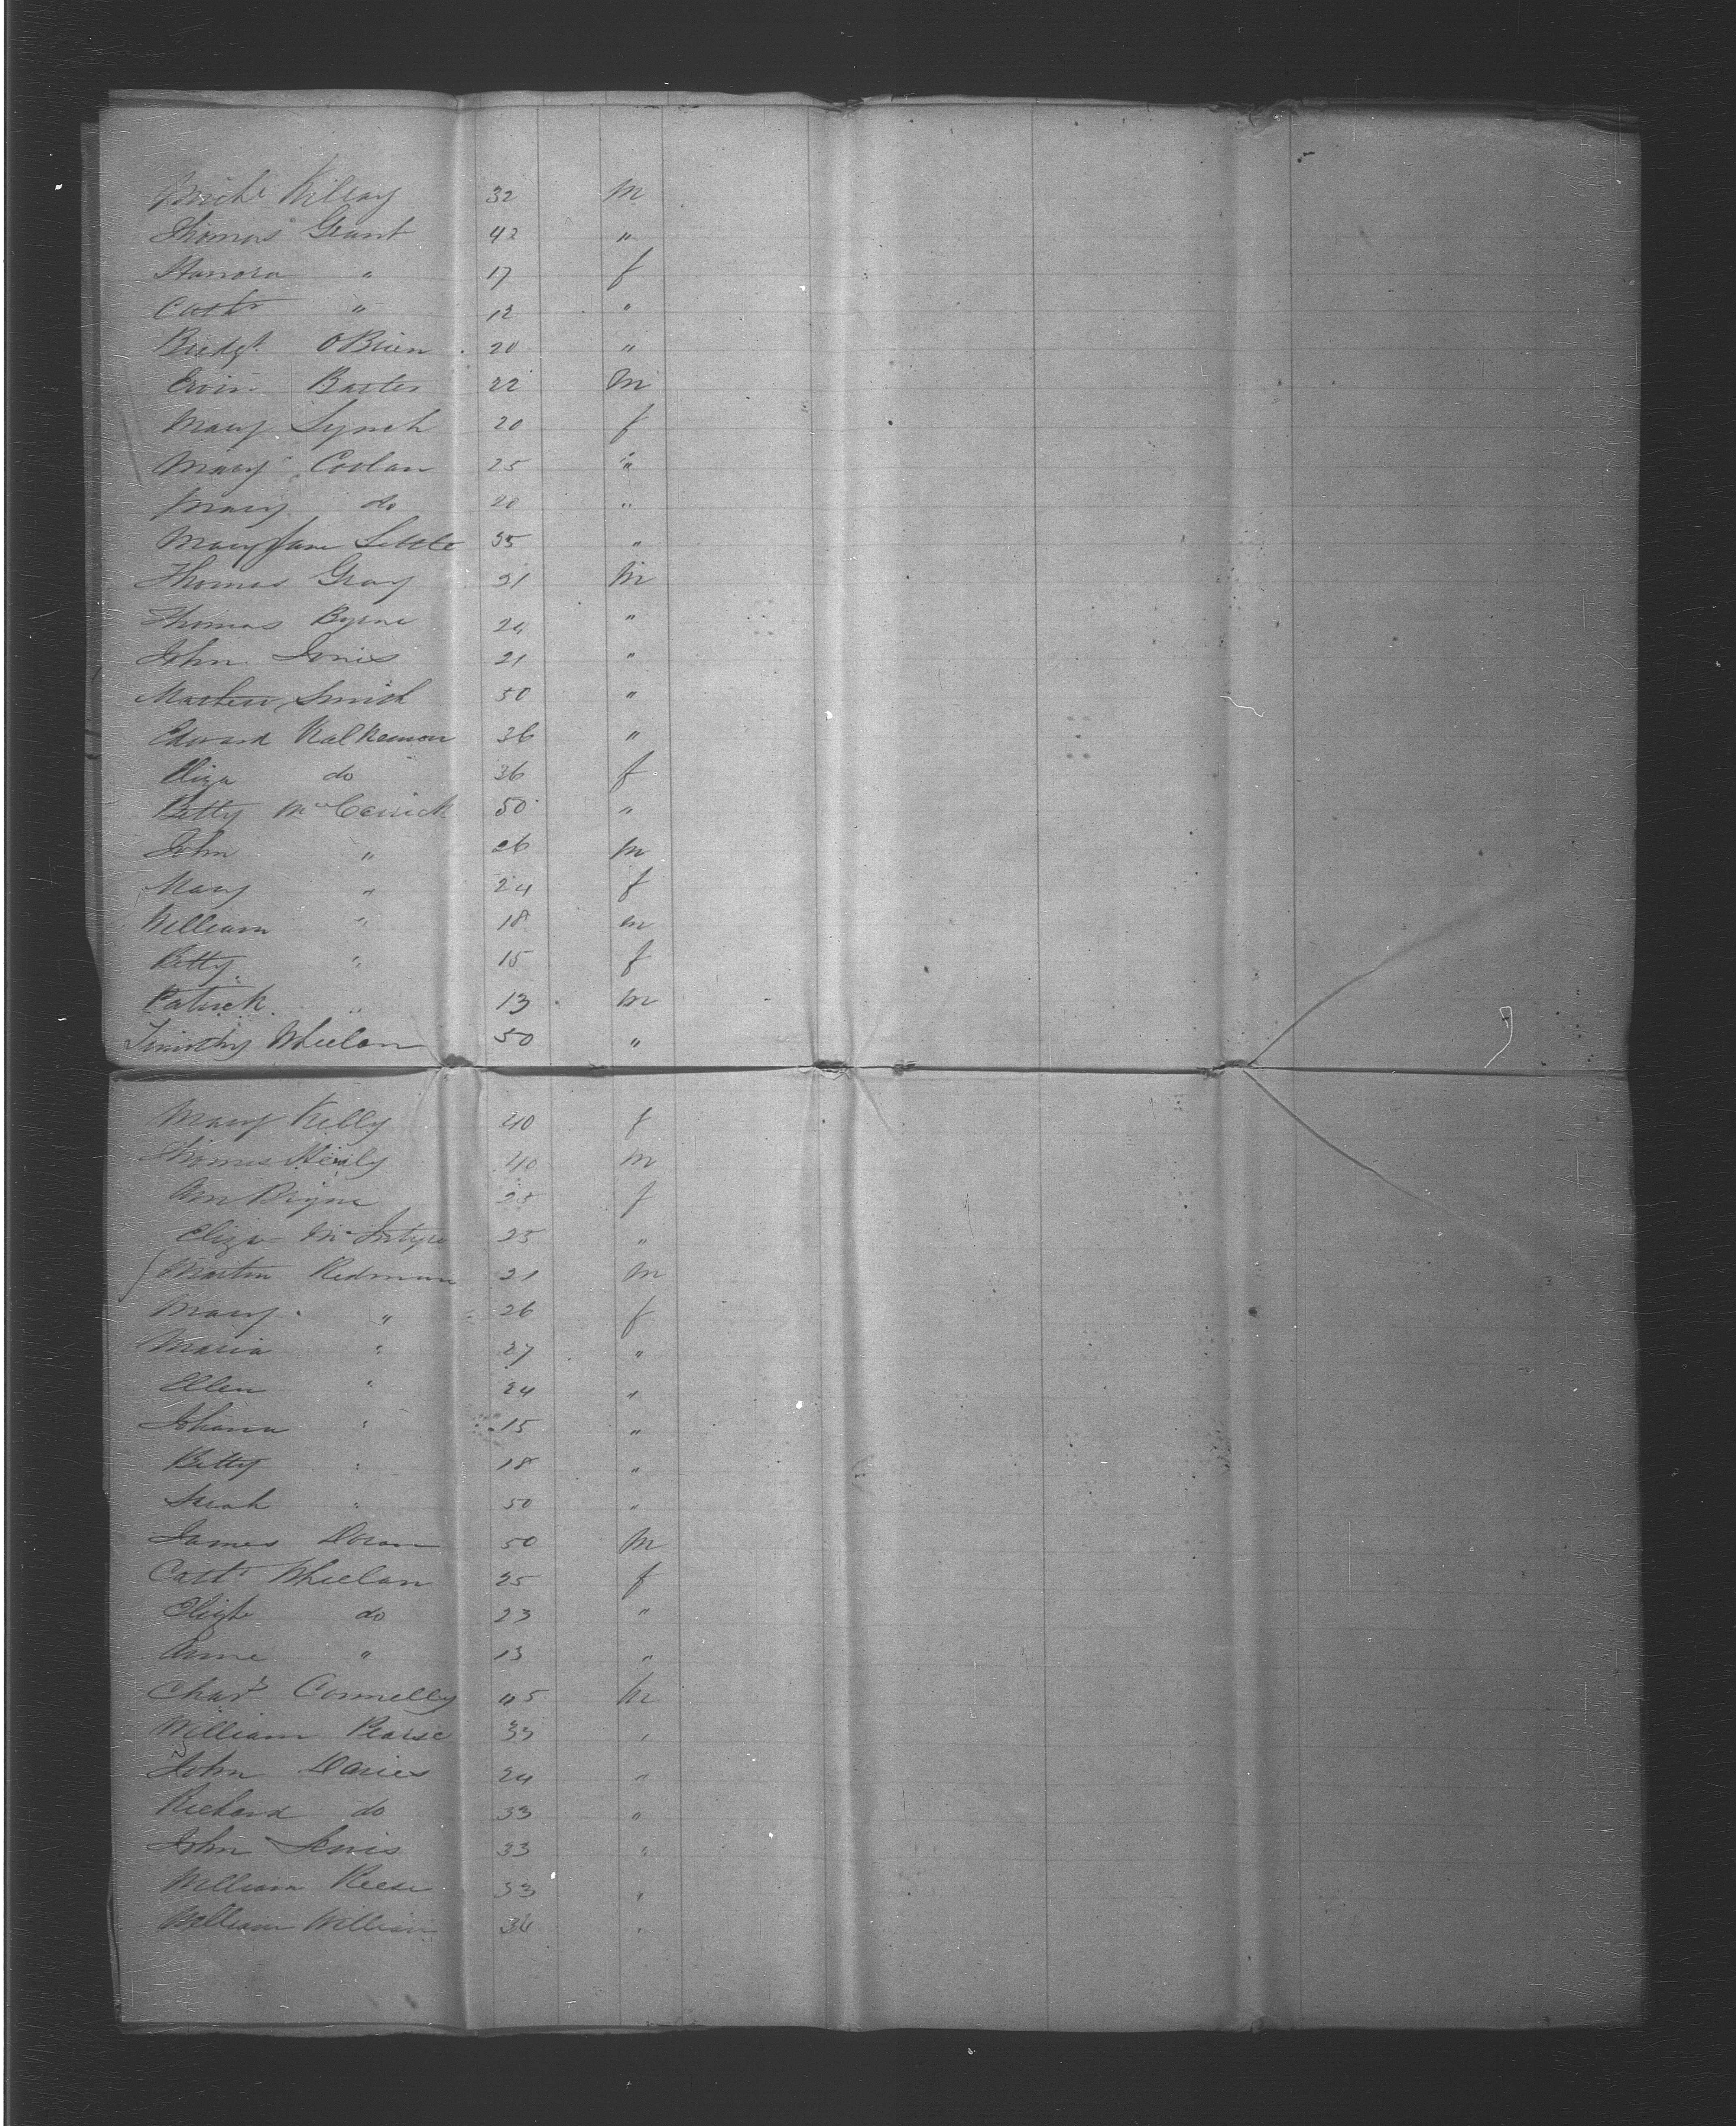 Mich^l Killay 32 m
Thomas Grant 42 "
Hanora " 17 f
Cath " 12 "
Bridgt. OBrien 20 "
Baxter 22 m
Mary Lynch 20 f
Mary Coolan 25 "
Mary do 20 "
Mary Jane Little 35 "
Thomas Gray 31 m
Thomas Byrne 24 "
John Jones 21 "
Mathew Smith 50 "
Edward 36 "
Eliza do 36 f
Betty 50 "
John " 26 m
Mary " 24 f
William " 18 m
Betty " 15 f
Patrick " 13 m
Timothy Wheelan 50 "
Mary Kelly 40 f
Thomas Healy 40 m
Ann Bryne 25 f
Eliza McIntyre 25 "
Martin Redman 21 m
Mary " 26 f
Maria " 27 "
Ellen " 24 "
Johana " 15 "
Betty " 18 "
" 50 "
James Doran 50 m
Cath Wheelan 25 f
do 23 "
Anne " 13 "
Chas Connelly 45 m
William Pearse 33 "
John Davies 24 "
Richard do 33 "
John Lewis 33 "
William Reese 33 "
William William 36 "